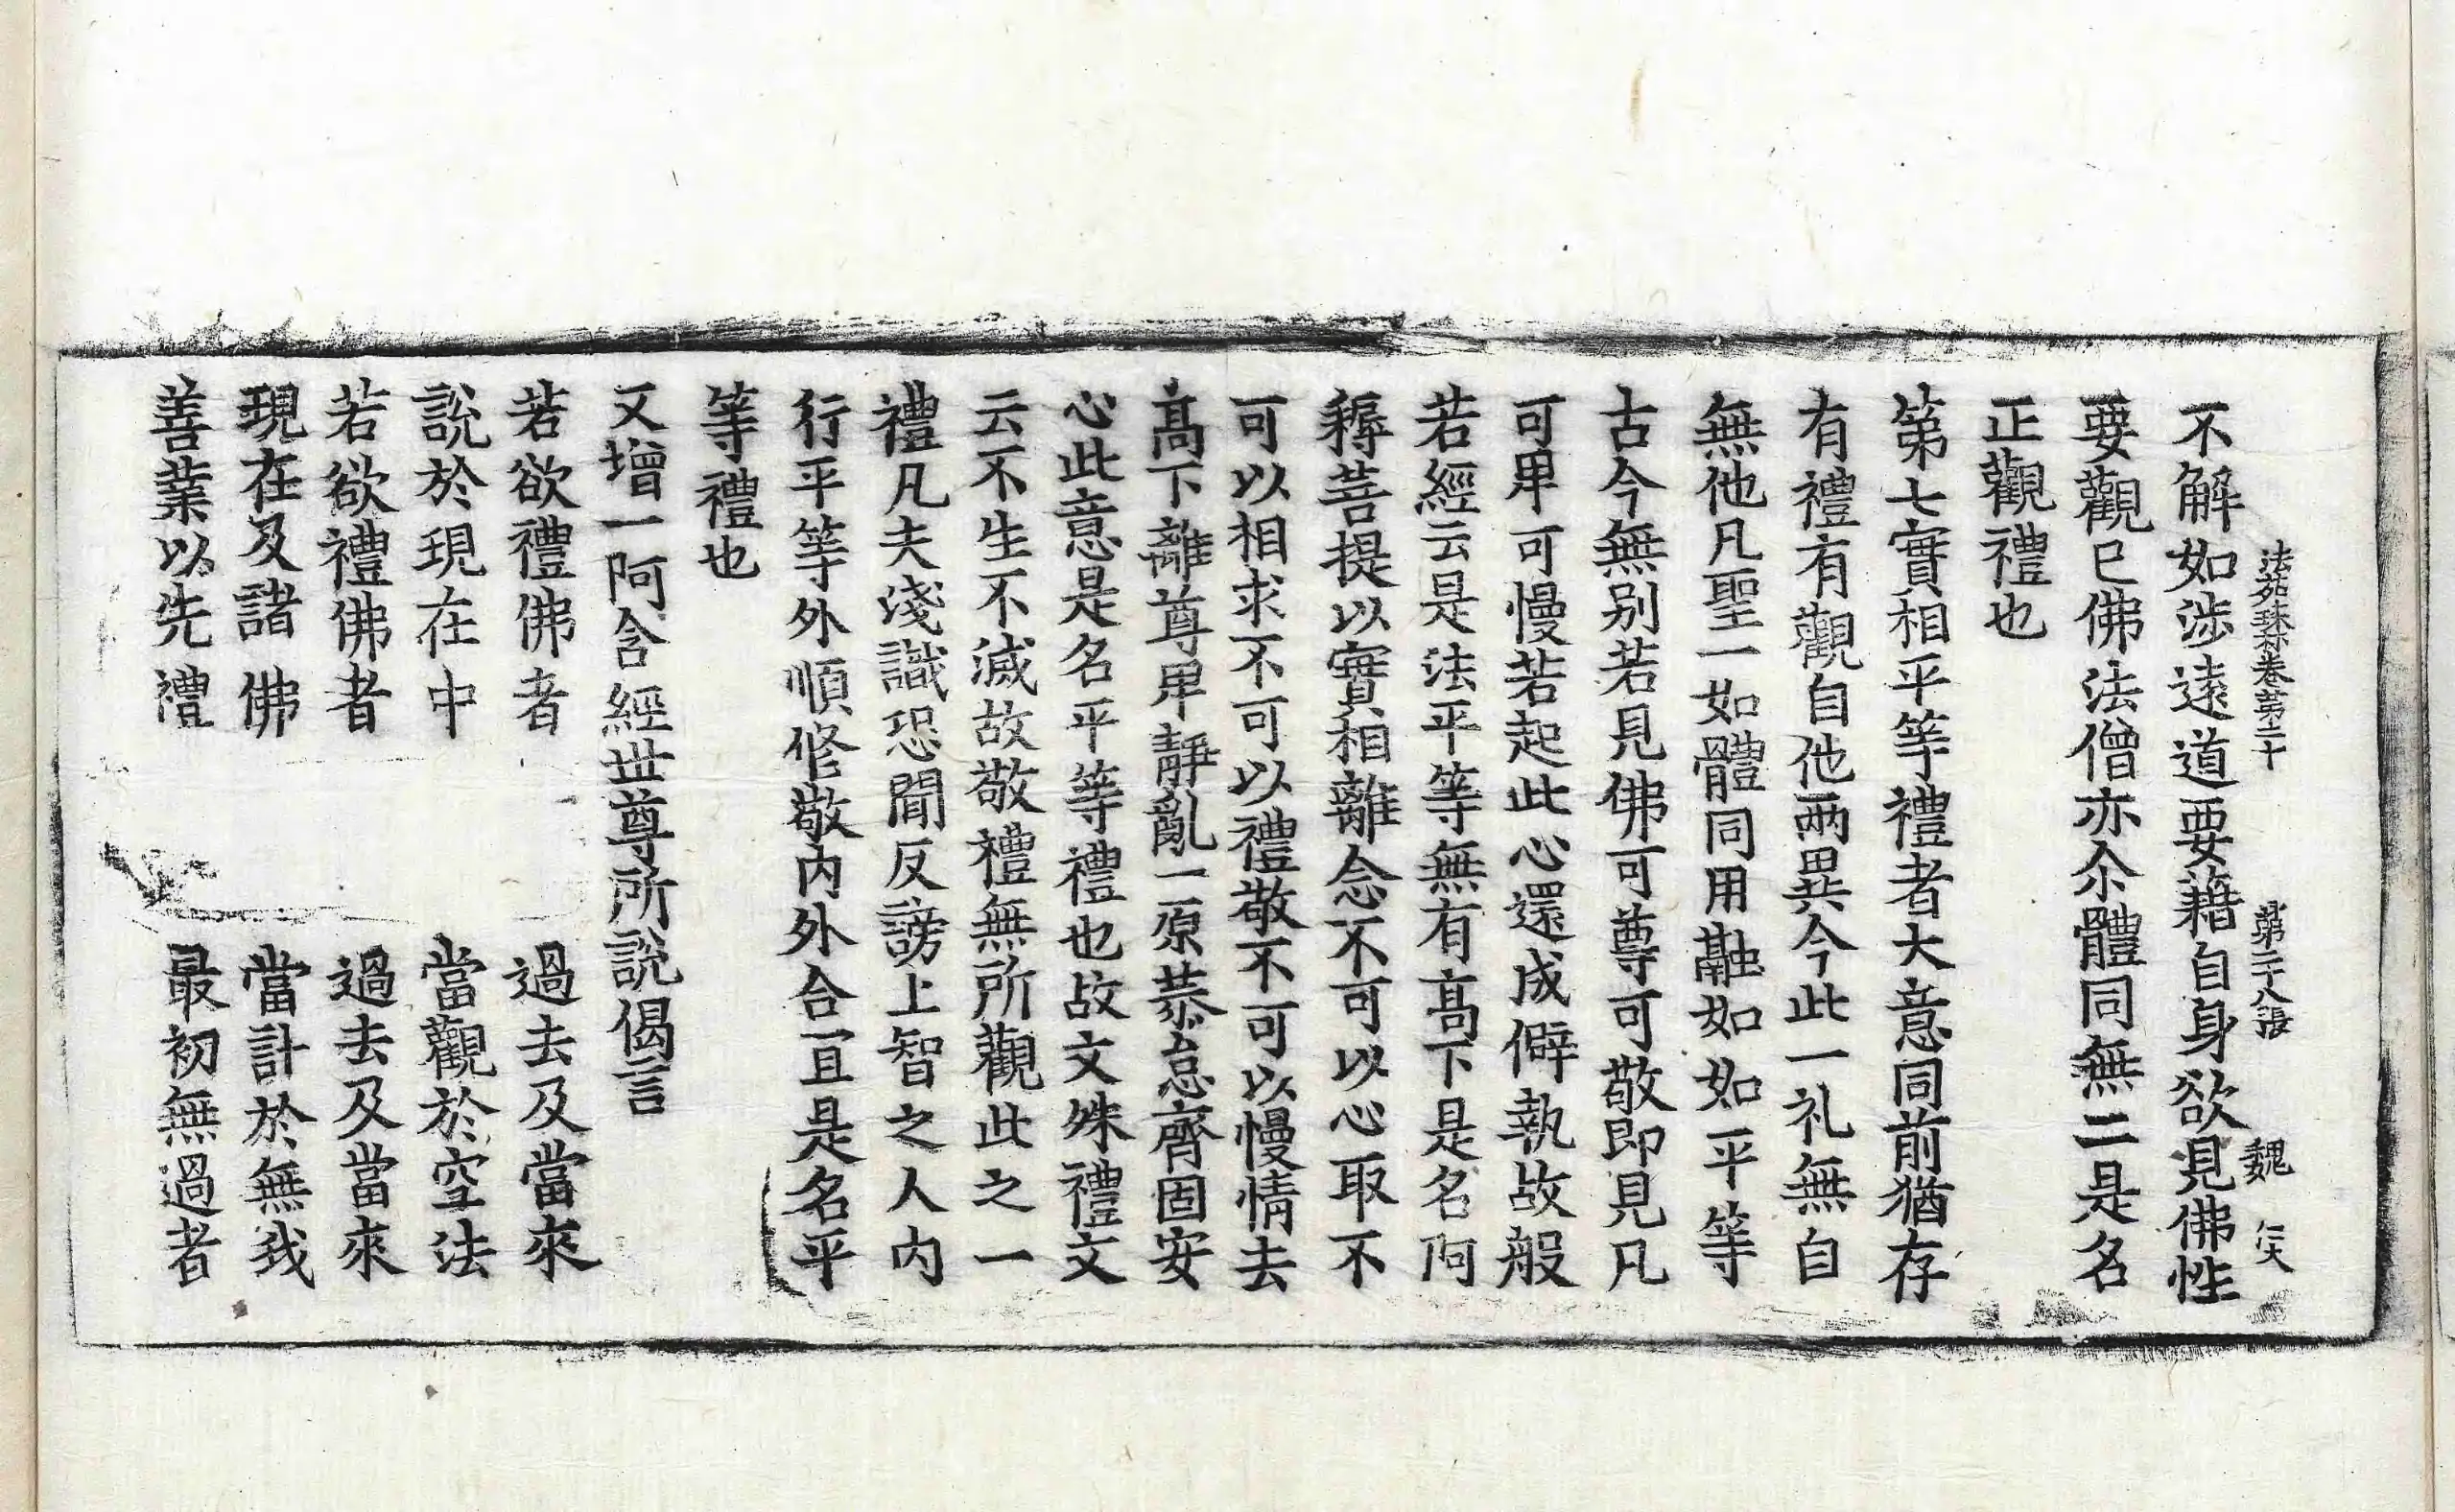 法苑珠林卷第二十 第二十八張 魏
不解如涉遠道要藉自身欲見佛性
要觀已佛法僧亦尒體同無二是名
正觀禮也
第七實相平等禮者大意同前猶存
有禮有觀自他兩異今此一礼無自
無他凡聖一如體同用融如如平等
古今無別若見佛可尊可敬即見凡
可卑可慢若起此心還成僻執故般
若經云是法平等無有高下是名阿
耨菩提以實相離念不可以心取不
可以相求不可以禮敬不可以慢情去
高下離尊卑靜亂一原恭怠齊固安
心此意是名平等禮也故文殊禮文
云不生不滅故敬禮無所觀此之一
禮凡夫淺識恐聞反謗上智之人內
行平等外順修敬內外合冝是名平
等禮也
又增一阿含經世尊所說偈言
若欲禮佛者 過去及當來
說於現在中 當觀於空法
若欲禮佛者 過去及當來
現在及諸佛 當計於無我
善業以先禮 最初無過者